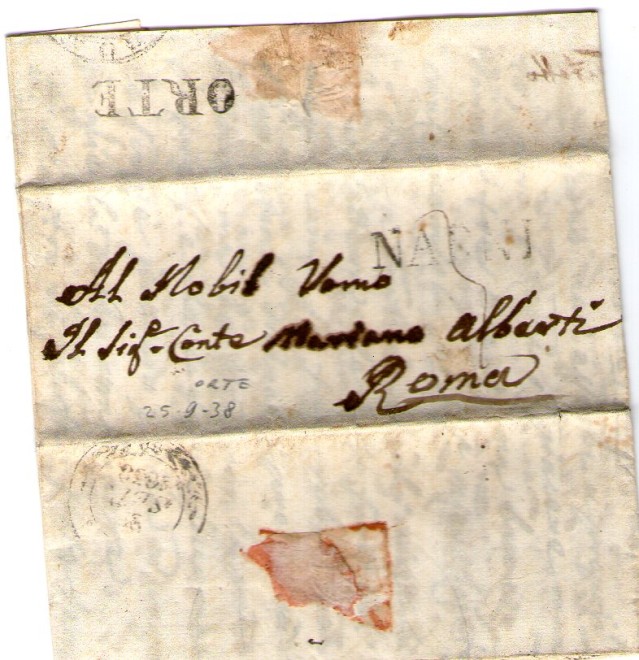 ORTE
NARNI
Al Nobil Uomo
Il Sigr. Conte Mariano Alberti
Roma
ORTE
25-9-38